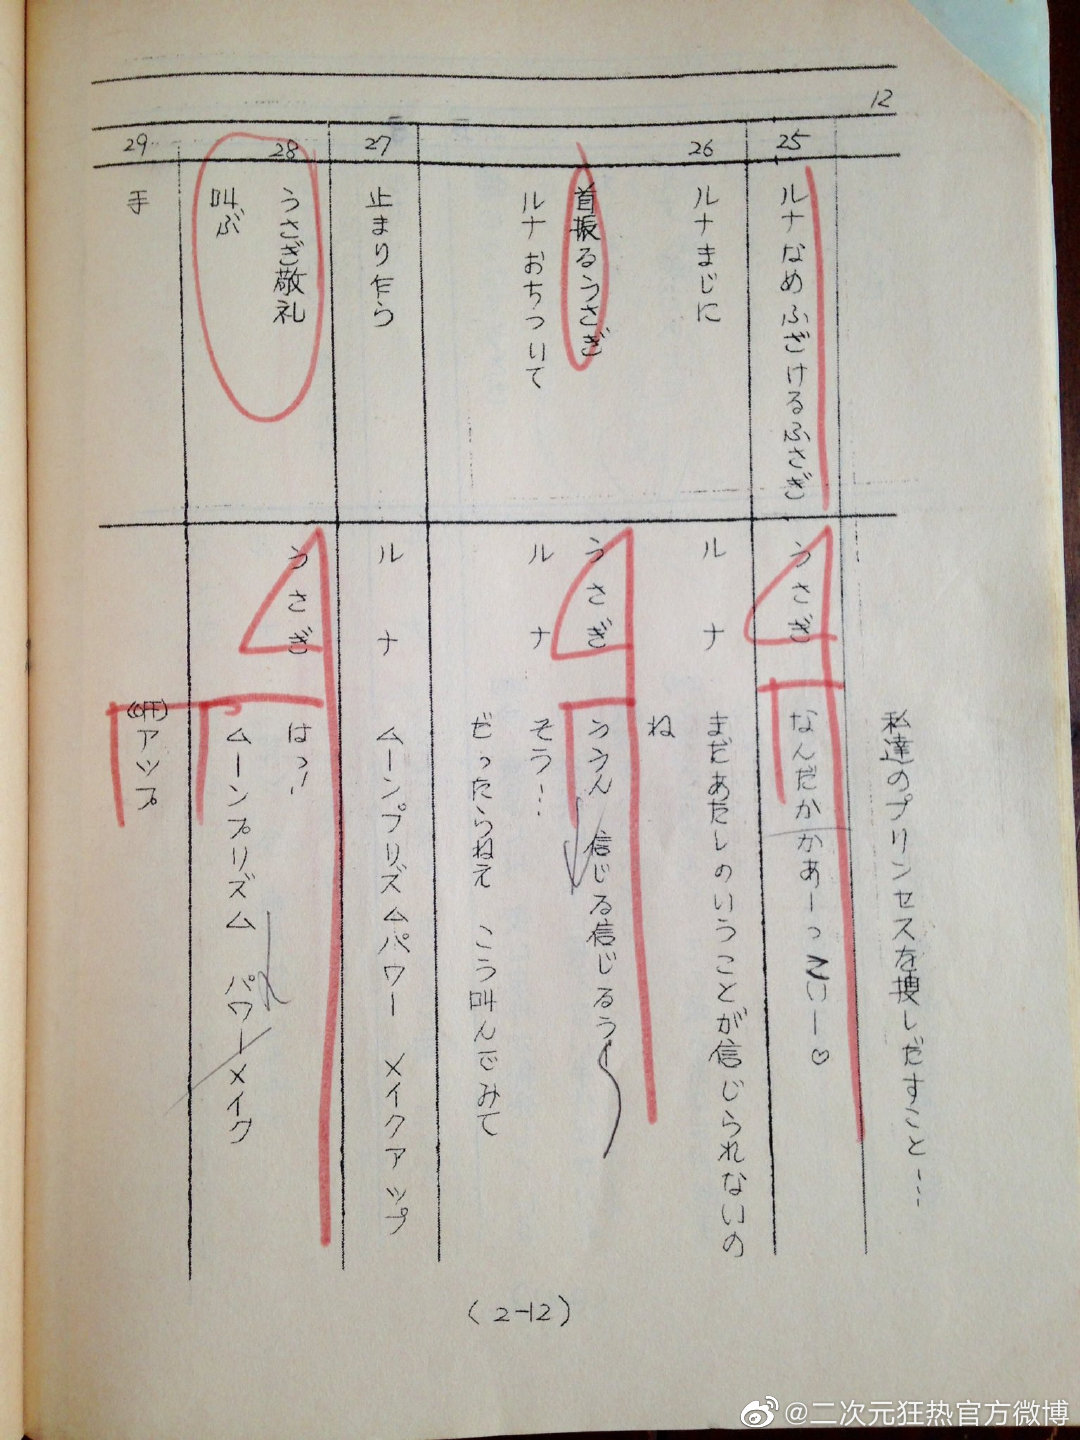 12
私達のプリンセスを捜しだすこと……
25
ルナなめふざけるふさぎ
うさぎ
なんだかかあーっこいー♡
26
ルナまじに
ルナ
まだあたしのいうことが信じられないの
ね
首振るうさぎ
うさぎ
ううん 信じる信じるぅ
ルナおちついて
ルナ
そう…
だったらねえ こう叫んでみて
27
止まり乍ら
ルナ
ムーンプリズムパワー メイクアップ
28
うさぎ敬礼
うさぎ
はっ!
叫ぶ
ムーンプリズム パワーメイク
29
手
(OFF)
アップ
(2-12)
@二次元狂热官方微博